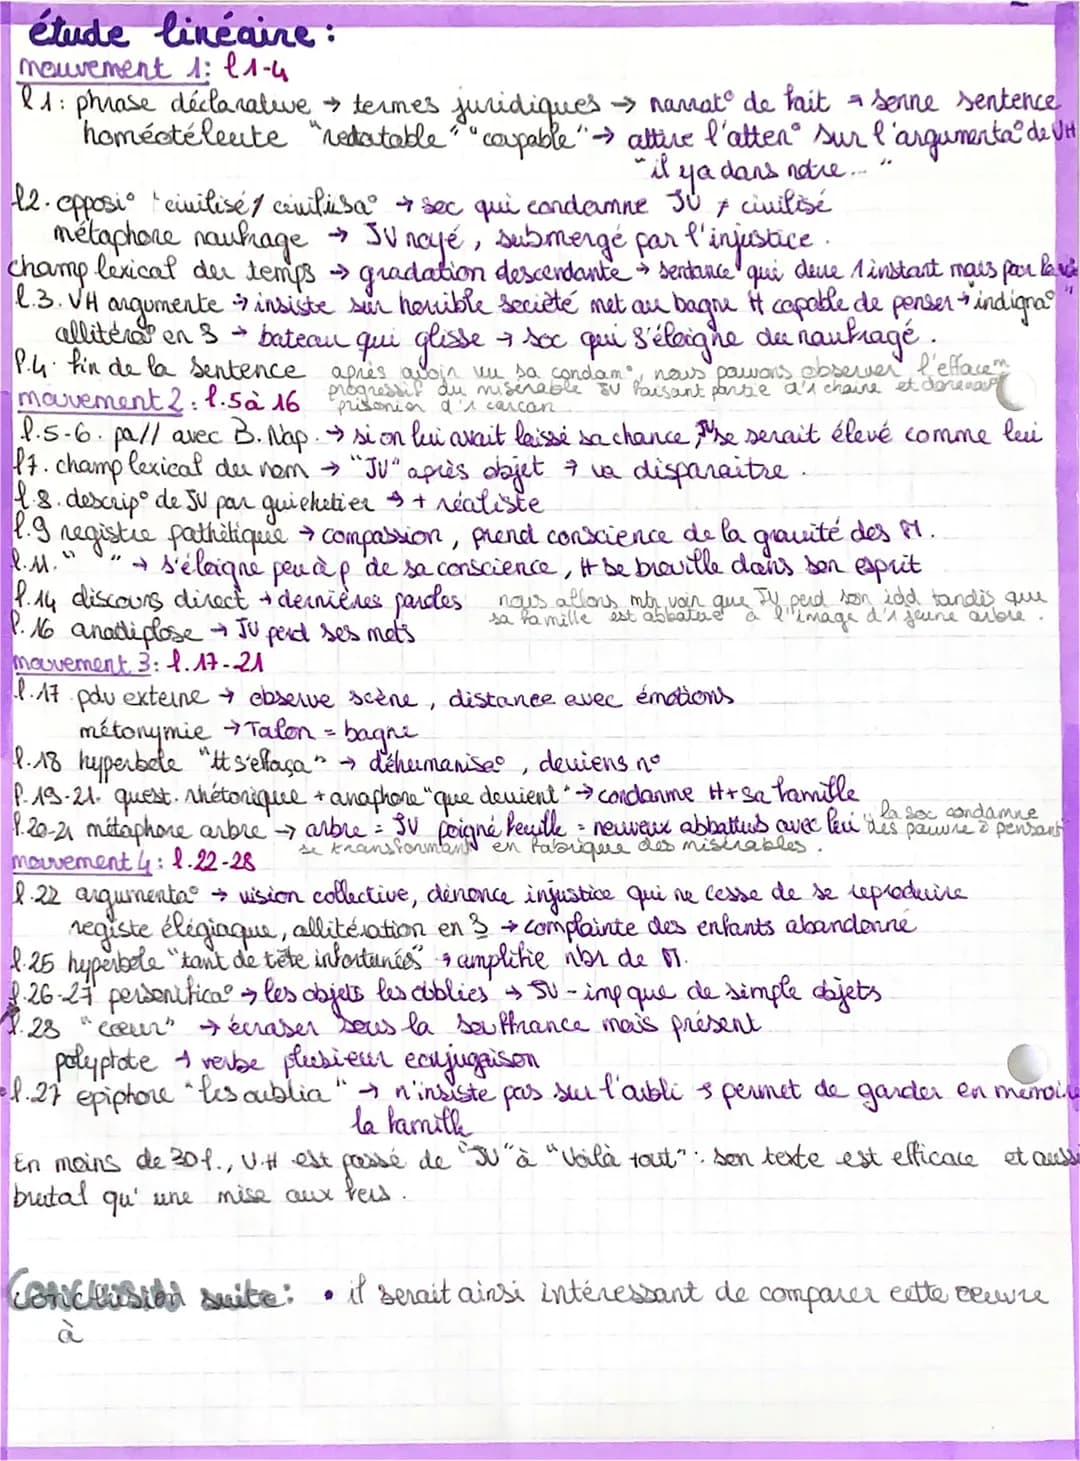 étude linéaire :
mouvement 1: l1-4
l1: phrase déclarative → termes juridiques → narrat° de fait → sonne sentence
homéotéleute "redoutable" "coupable" → attire l'atten° sur l'argumenta° de VH
"il ya dans notre... "
l2. opposi° "civilisé / civilisa° → soc qui condamne JV ≠ civilisé
métaphore naufrage → JV noyé, submergé par l'injustice.
champ lexical du temps → gradation descendante → sentance qui dure 1 instant mais pour la vie
l.3. VH argumente → insiste sur horrible société met au bagne H capable de penser → indigna°
allitéra° en s → bateau qui glisse → soc qui s'éloigne du naufragé.
l.4. fin de la sentence après avoir vu sa condam°, nous pouvons observer l'effacem
progressif du misérable JV faisant partie d'1 chaine et dorenavant
mouvement 2 : l.5 à 16 prisonier d'1 carcan
l.5-6. pa// avec B. Nap. → si on lui avait laissé sa chance, JV se serait élevé comme lui
l7. champ lexical du nom → "JV" après objet → va disparaitre.
l.8. descrip° de JV par guichetier → + réaliste
l.9 registre pathétique → compassion, prend conscience de la gravité des M.
l.11. " " → s'éloigne peu à p de sa conscience, tt se brouille dans son esprit
l.14 discours direct → dernières paroles nous allons mtn voir que JV perd son idd tandis que
sa famille est abbatue à l'image d'1 jeune arbre.
l.16 anadiplose → JV perd ses mots
mouvement 3: l.17-21
l.17 pdv externe → observe scène, distance avec émotions
métonymie → Talon = bagne
l.18 hyperbole "tt s'effaça" → déhumanisa°, deviens n°
l.19-21. quest. rhétorique + anaphore "que devient" → condamne H + sa famille
l.20-21 métaphore arbre → arbre = JV poigné feuille = neuveux abbattus avec lui la soc condamne
des pauvre è pensant
se transformant en fabrique des misérables.
mouvement 4: l.22-28
l.22 argumenta° → vision collective, dénonce injustice qui ne cesse de se reproduire
registe élégiaque, allitération en s → complainte des enfants abandonné
l.25 hyperbole "tant de tête infortunés" → amplifie nbr de M.
l.26-27 personifica° → les objets les oublies → JV - imp que de simple objets
l.28 "cœur" → écraser sous la souffrance mais présent
polyptote → verbe plusieur conjugaison
• l.27 épiphore "les oublia" → n'insiste pas sur l'oubli → permet de garder en mémoire
la famille
En moins de 30 l., V.H est passé de "JV" à "Voilà tout" : son texte est efficace et aussi
brutal qu'une mise aux fers.
Conclusion suite: • il serait ainsi intéressant de comparer cette œuvre
à